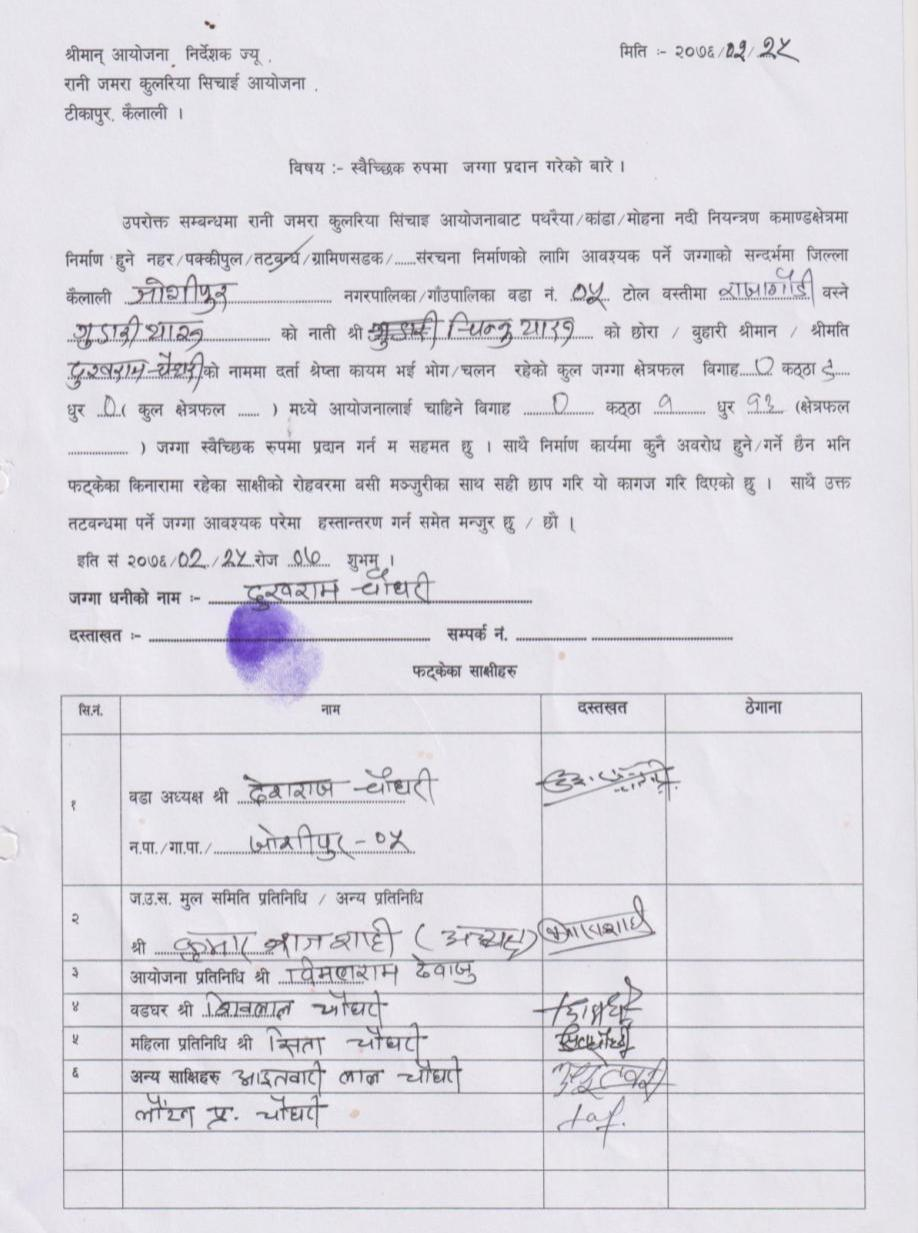 श्रीमान् आयोजना निर्देशक ज्यू,
मिति :- २०७६/०२/२५
रानी जमरा कुलरिया सिचाई आयोजना,
टीकापुर, कैलाली ।
विषय :- स्वैच्छिक रुपमा जग्गा प्रदान गरेको बारे ।
उपरोक्त सम्बन्धमा रानी जमरा कुलरिया सिंचाइ आयोजनावाट पथरैया/कांडा/मोहना नदी नियन्त्रण कमाण्डक्षेत्रमा
निर्माण हुने नहर/पक्कीपुल/तटबन्ध/ग्रामिणसडक/......संरचना निर्माणको लागि आवश्यक पर्ने जग्गाको सन्दर्भमा जिल्ला
कैलाली जोशीपुर नगरपालिका/गाँउपालिका वडा नं. ०५ टोल वस्तीमा वस्ने
को नाती श्री को छोरा / वुहारी श्रीमान / श्रीमति
दुखराम चौधरी को नाममा दर्ता श्रेष्ता कायम भई भोग/चलन रहेको कुल जग्गा क्षेत्रफल विगाह 0 कठ्ठा
धुर 0 ( कुल क्षेत्रफल ...... ) मध्ये आयोजनालाई चाहिने विगाह 0 कठ्ठा १ धुर १३ (क्षेत्रफल
.................. ) जग्गा स्वैच्छिक रुपमा प्रदान गर्न म सहमत छु । साथै निर्माण कार्यमा कुनै अवरोध हुने/गर्ने छैन भनि
फट्केका किनारामा रहेका साक्षीको रोहवरमा बसी मञ्जुरीका साथ सही छाप गरि यो कागज गरि दिएको छु । साथै उक्त
तटवन्धमा पर्ने जग्गा आवश्यक परेमा हस्तान्तरण गर्न समेत मन्जुर छु / छौ ।
इति सं २०७६/02/२५ रोज ०७ शुभम् ।
जग्गा धनीको नाम :- दुखराम चौधरी
दस्ताखत :- सम्पर्क नं.
फट्केका साक्षीहरु
सि.नं. नाम दस्तखत ठेगाना
१ वडा अध्यक्ष श्री देशराज चौधरी
न.पा./गा.पा./ जोशीपुर - ०५
२ ज.उ.स. मुल समिति प्रतिनिधि / अन्य प्रतिनिधि
श्री कुमार शाही (अध्यक्ष)
३ आयोजना प्रतिनिधि श्री विमलराम देवाजु
४ वडघर श्री शिवलाल चौधरी
५ महिला प्रतिनिधि श्री सिता चौधरी
६ अन्य साक्षिहरु आइतवारी लाल चौधरी
प्र. चौधरी